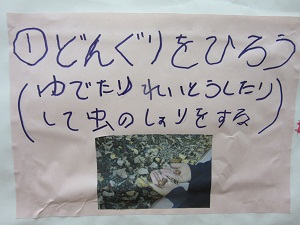 ①どんぐりをひろう
(ゆでたりれいとうしたり
して虫のしょりをする)